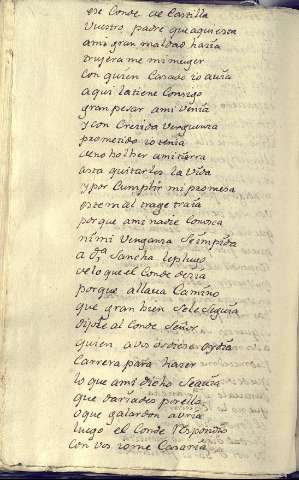 ese Conde de Castilla
vuestro padre que aqui esta
ami gran maldad hazia
truxera me mi muger
con quien Casado io avia
aqui la tiene Consigo
gran pesar ami venia
y con Crezida verguenza
prometido io venia
de no bolber ami tierra
asta quitarles la Vida
y por Cumplir mi promesa
este mal trage traia
porque ami nadie Conozca
ni mi Venganza se impida
a D.ª Sancha le plugo
de lo que el Conde dezia
porque alla va Camino
que gran bien se le seguia
dijole al Conde Señor
quien a vos os diese oy dia
Carrera para hazer
lo que ami dicho seguia
que dariades por ella
o que galardon avria
luego el Conde Respondio
Con vos io me Casaria